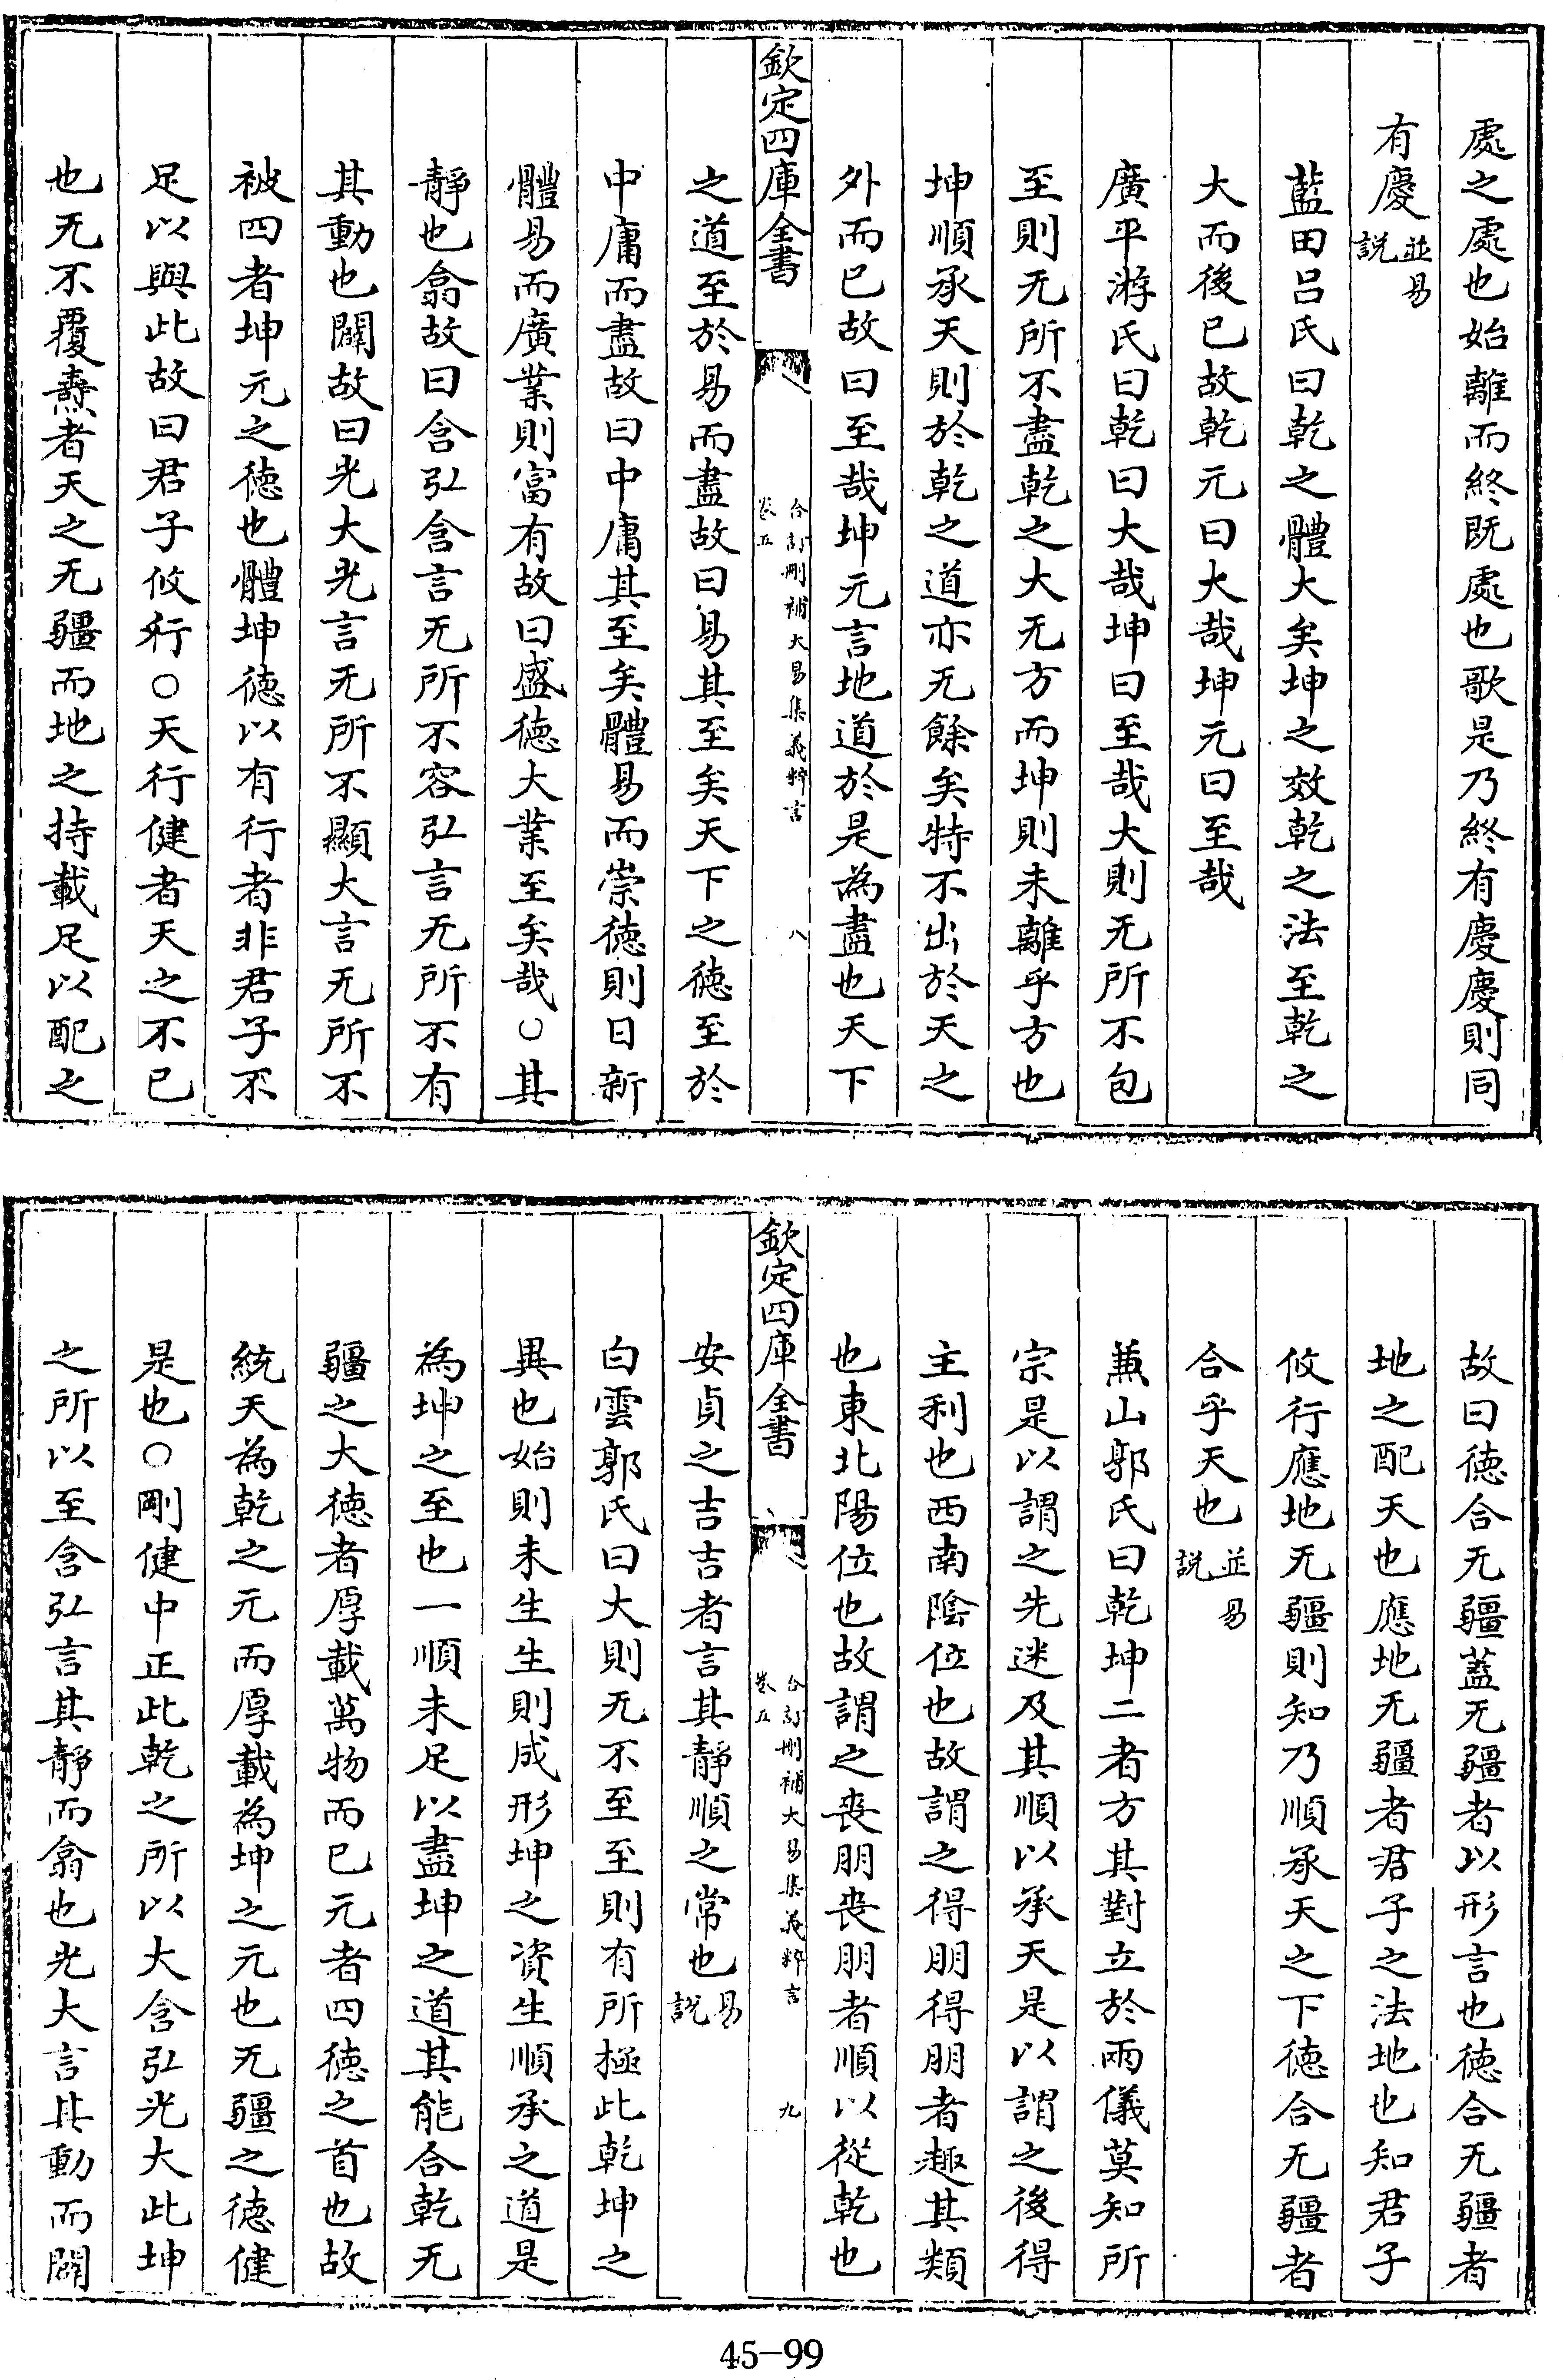 處之處也始離而終既處也歌是乃終有慶慶則同
有慶並易說
藍田呂氏曰乾之體大矣坤之效乾之法至乾之
大而後已故乾元曰大哉坤元曰至哉
廣平游氏曰乾曰大哉坤曰至哉大則无所不包
至則无所不盡乾之大无方而坤則未離乎方也
坤順承天則於乾之道亦无餘矣特不出於天之
外而已故曰至哉坤元言地道於是為盡也天下
欽定四庫全書
合訂刪補大易集義粹言
卷五
八
之道至於易而盡故曰易其至矣天下之德至於
中庸而盡故曰中庸其至矣體易而崇德則日新
體易而廣業則富有故曰盛德大業至矣哉○其
靜也翕故曰含弘含言无所不容弘言无所不有
其動也闢故曰光大光言无所不顯大言无所不
被四者坤元之德也體坤德以有行者非君子不
足以與此故曰君子攸行○天行健者天之不已
也无不覆燾者天之无疆而地之持載足以配之
故曰德合无疆蓋无疆者以形言也德合无疆者
地之配天也應地无疆者君子之法地也知君子
攸行應地无疆則知乃順承天之下德合无疆者
合乎天也並易說
蕙山郭氏曰乾坤二者方其對立於兩儀莫知所
宗是以謂之先迷及其順以承天是以謂之後得
主利也西南陰位也故謂之得朋得朋者趣其類
也東北陽位也故謂之喪朋喪朋者順以從乾也
欽定四庫全書
合訂刪補大易集義粹言
卷五
九
安貞之吉吉者言其靜順之常也易說
白雲郭氏曰大則无不至至則有所極此乾坤之
異也始則未生生則成形坤之資生順承之道是
為坤之至也一順未足以盡坤之道其能合乾无
疆之大德者厚載萬物而已元者四德之首也故
統天為乾之元而厚載為坤之元也无疆之德健
是也○剛健中正此乾之所以大含弘光大此坤
之所以至含弘言其靜而翕也光大言其動而闢
45-99